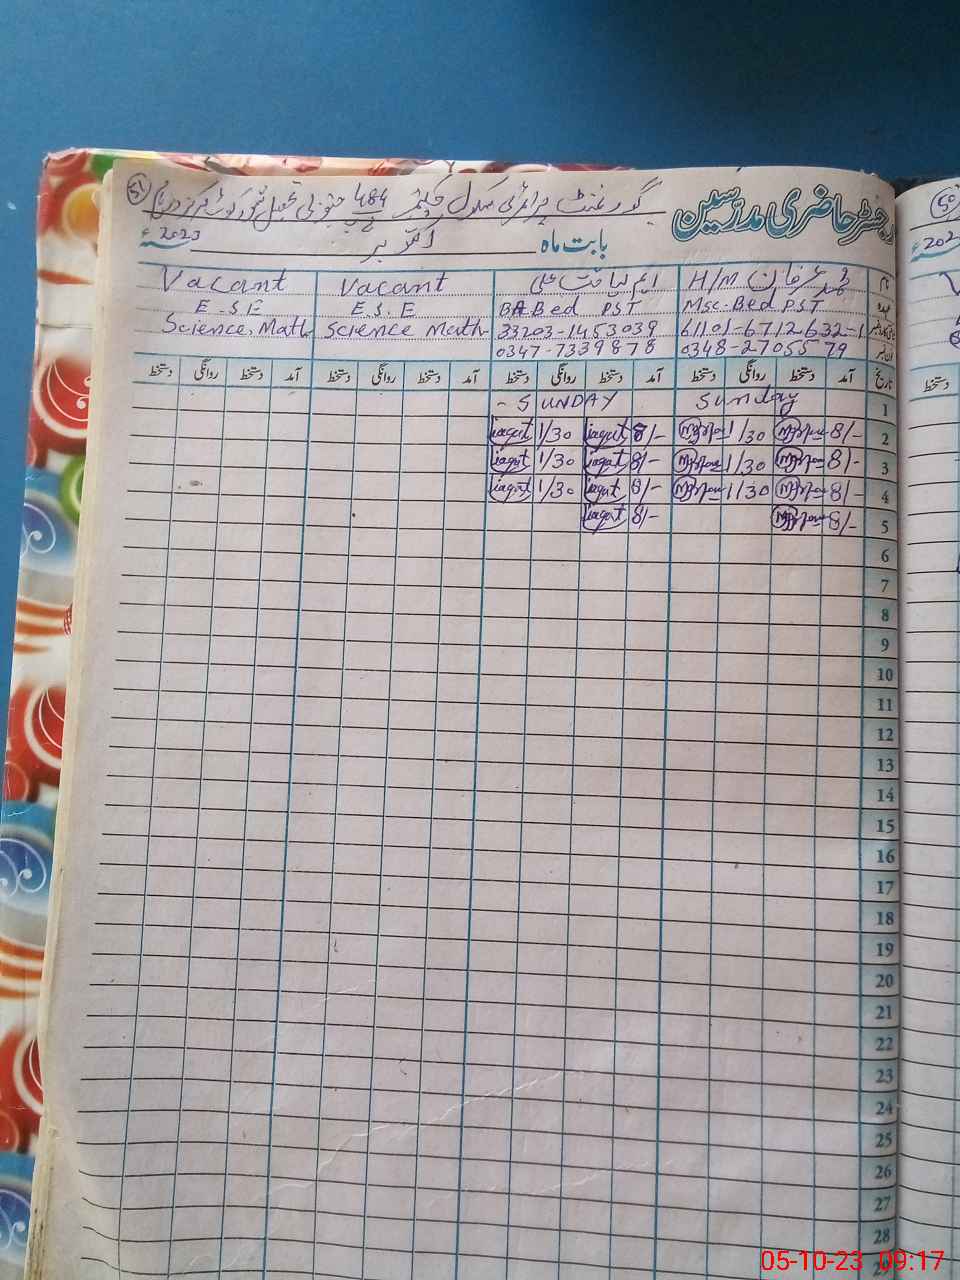 رجسٹر حاضری مدرسین
گورنمنٹ پرائمری سکول چک نمبر 484 ج ب جنوبی تحصیل شورکوٹ
51
بابت ماہ اکتوبر 2023ء
نام محمد عرفان H/M ایم لیاقت علی Vacant Vacant
عہدہ Msc-Bed PST BA Bed PST E.S.E E.S.E
61101-6712632-1 33203-1453039 Science Math Science, Math
فون نمبر 0348-2705579 0347-7339878
تاریخ آمد دستخط روانگی دستخط آمد دستخط روانگی دستخط آمد دستخط روانگی دستخط آمد دستخط روانگی دستخط
1 Sunday - SUNDAY
2 8/- 1/30 8/- liaqat 1/30 liaqat
3 8/- 1/30 8/- liaqat 1/30 liaqat
4 8/- 1/30 8/- liaqat 1/30 liaqat
5 8/- 8/- liaqat
6
7
8
9
10
11
12
13
14
15
16
17
18
19
20
21
22
23
24
25
26
27
28
29
50
202
دستخط
05-10-23 09:17